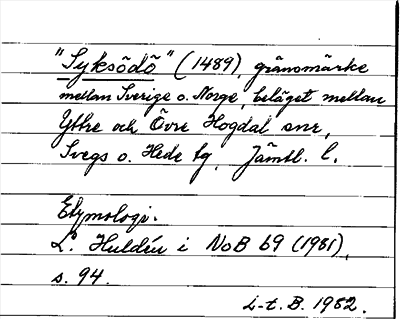 "Syksödö" (1489), gränsmärke
mellan Sverige o. Norge, beläget mellan
Yttre och Övre Hogdal snr,
Svegs o. Hede tg, Jämtl. l.
Etymologi:
L. Huldén i NoB 69 (1981),
s. 94.
L-t. B. 1982.